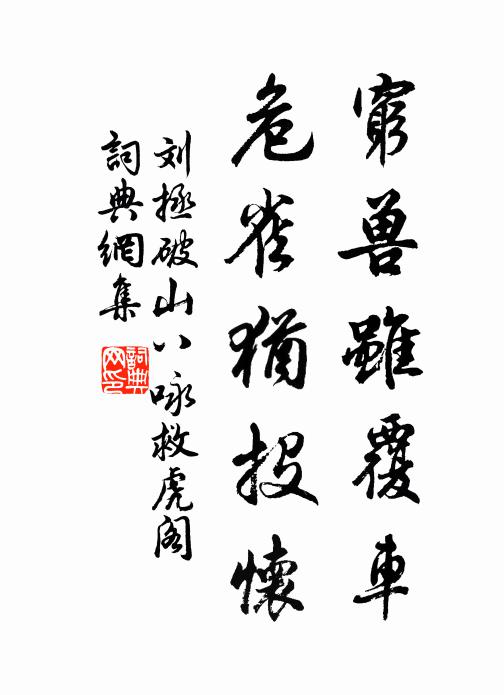 窮兽雖覆車
危雀猶投懷
刘拯破山八咏救虎阁
詞典網集
詞典網印